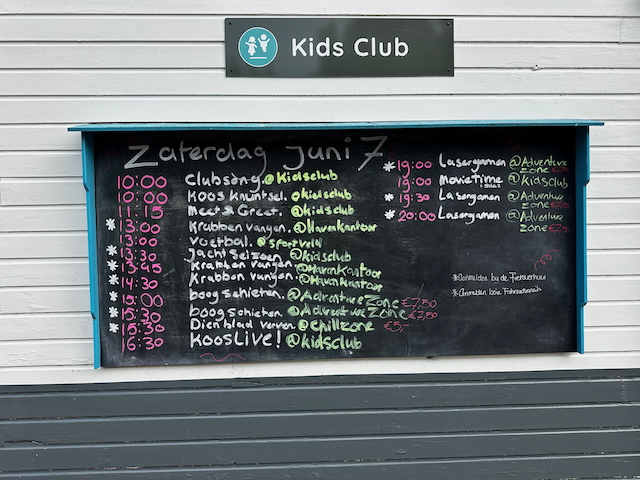 Kids Club
Zaterdag Juni 7
10:00 Clubsong. @Kidsclub
10:00 Koos knutsel. @kidsclub
11:15 Meet & Greet. @kidsclub
* 13:00 Krabben vangen. @Havenkantoor
13:00 Voetbal. @sportveld
* 13:30 Jacht Seizoen @kidsclub
* 13:45 Krabben vangen. @Havenkantoor
* 14:30 Krabben vangen. @Havenkantoor
* 15:00 boogschieten. @AdventureZone €7,50
* 15:30 boogschieten. @AdventureZone €7,50
* 15:30 Dienblad verven @chillzone €5,-
16:30 KoosLive! @kidsclub
* 19:00 Lasergamen @Adventure
zone €7,50
19:00 Movietime @kidsclub
* 19:30 Lasergamen @Adventure
zone €7,50
* 20:00 Lasergamen @Adventure
zone €7,50
* Aanmelden bij de Fietsverhuur
* Anmelden beim